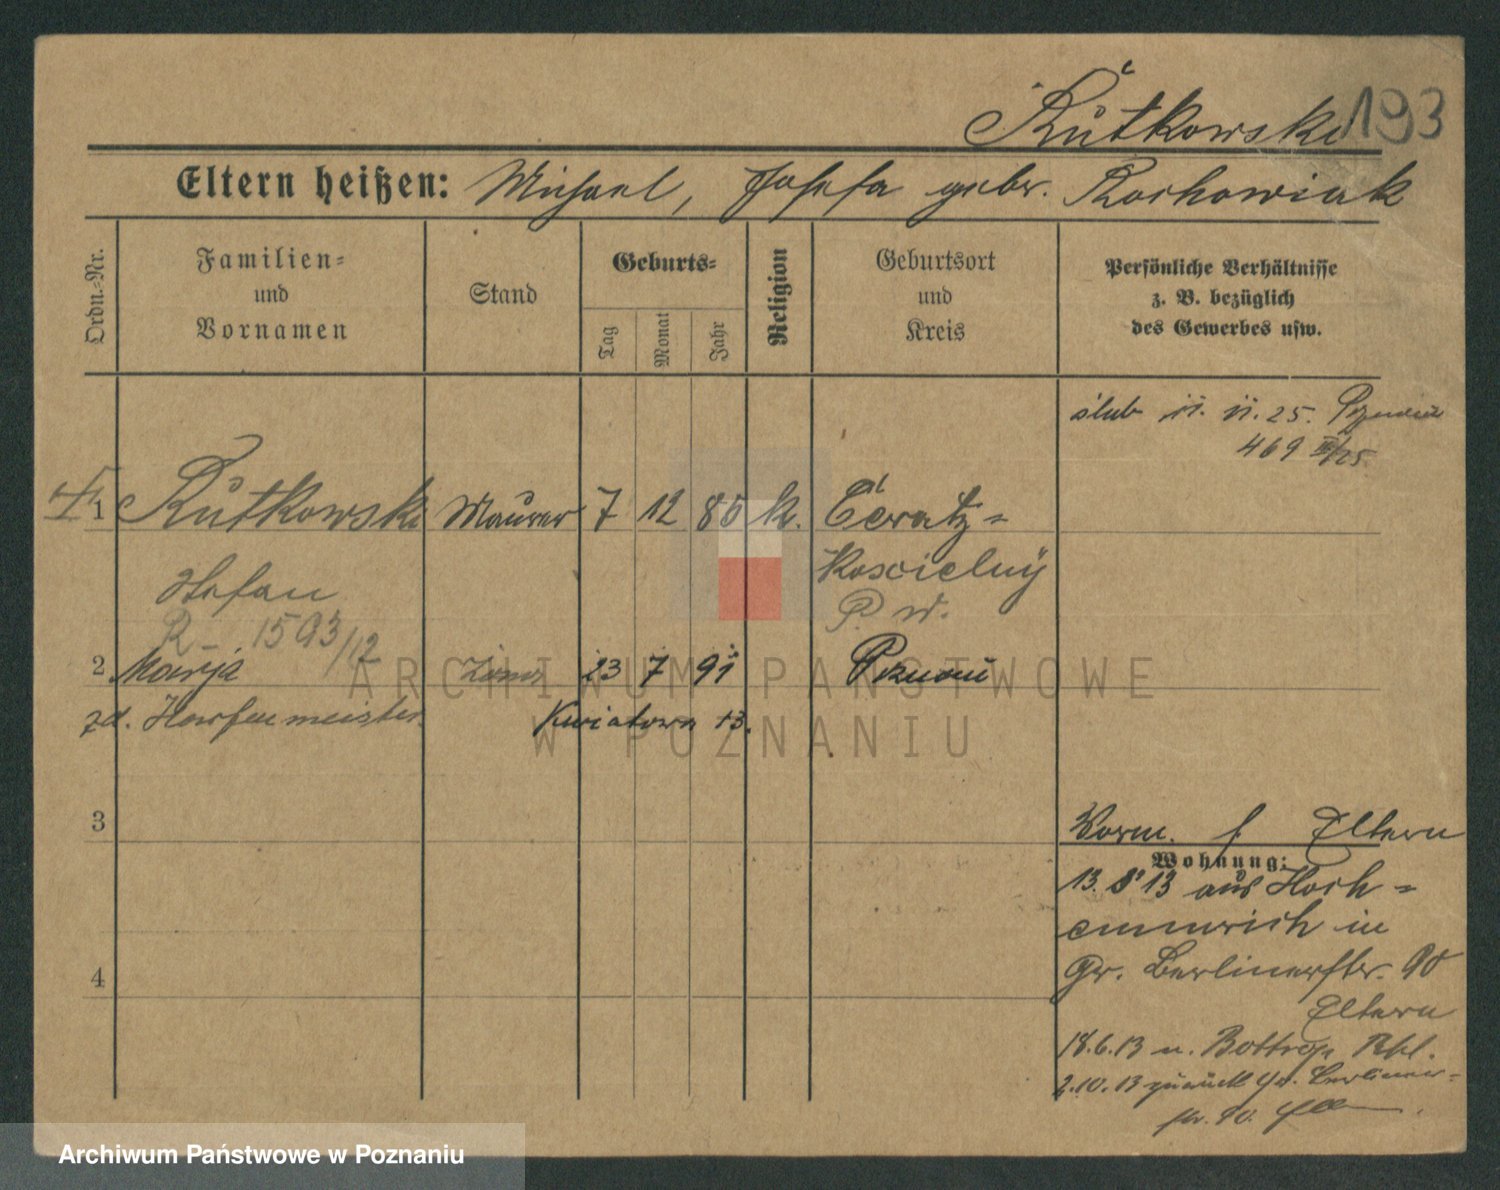 Rutkowski 193
Eltern heißen: Michael, Josefa gebr. Rochowiak
Ordn.-Nr.
Familien-
und
Vornamen
Stand
Geburts-
Tag
Monat
Jahr
Religion
Geburtsort
und
Kreis
Persönliche Verhältnisse
z. B. bezüglich
des Gewerbes usw.
ślub 11. 11. 25. Poznań
469 III/25
1 Rutkowski Maurer 7 12 80 k.
Koscielny
Stefan
R 1593/12
2 Marja żona 23 7 91 Poznań
zd. Harfenmeister Kwiatowa 13.
3
4
Vorm. f Eltern
Wohnung:
13. 5. 13 aus Hoch-
emmerich in
Gr. Berlinerstr. 90
Eltern
18.6.13 n. Bottrop
2.10.13 zurück Gr. Berliner-
str. 90.
ARCHIWUM PAŃSTWOWE
W POZNANIU
Archiwum Państwowe w Poznaniu